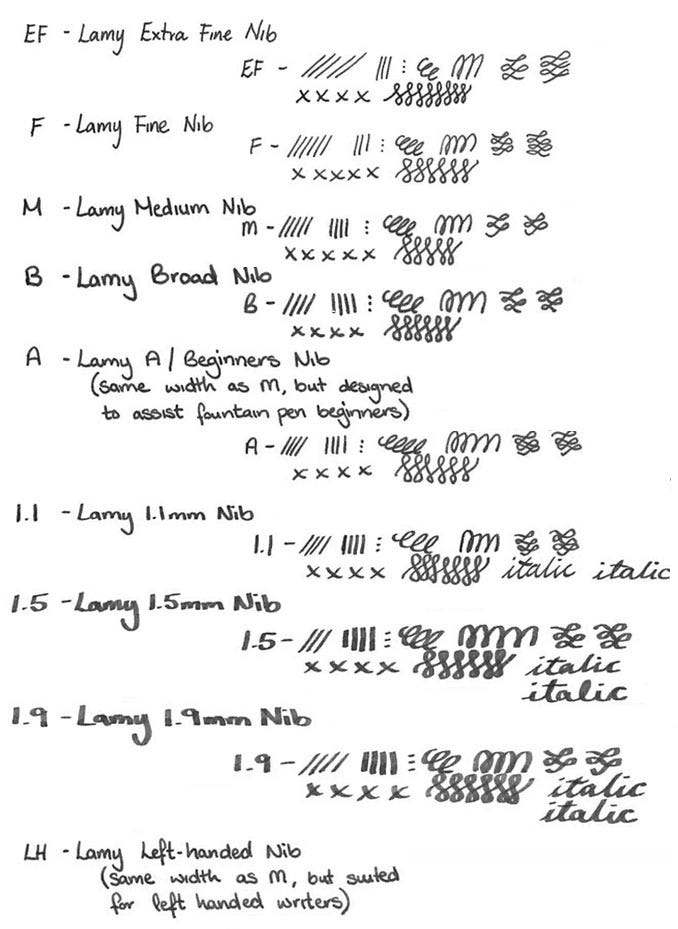 EF - Lamy Extra Fine Nib
EF -
x x x x
F - Lamy Fine Nib
F -
x x x x x
M - Lamy Medium Nib
m -
x x x x x
B - Lamy Broad Nib
B -
x x x x
A - Lamy A / Beginners Nib
(same width as M, but designed
to assist fountain pen beginners)
A -
x x x x
1.1 - Lamy 1.1mm Nib
1.1 -
x x x x italic italic
1.5 - Lamy 1.5mm Nib
1.5 -
x x x x italic
italic
1.9 - Lamy 1.9mm Nib
1.9 -
x x x x italic
italic
LH - Lamy Left-handed Nib
(same width as M, but suited
for left handed writers)